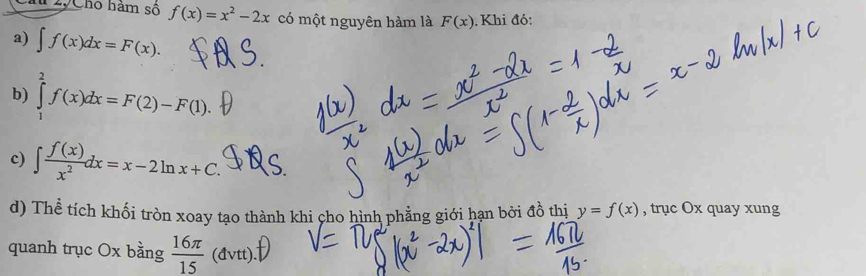 Câu 2. Cho hàm số f(x) = x² − 2x có một nguyên hàm là F(x). Khi đó:
a) ∫ f(x)dx = F(x). S.
b) ∫₁² f(x)dx = F(2) − F(1). Đ
f(x)/x² dx = (x² − 2x)/x² = 1 − 2/x
c) ∫ f(x)/x² dx = x − 2 ln x + C. S.
∫ f(x)/x² dx = ∫(1 − 2/x)dx = x − 2 ln|x| + C
d) Thể tích khối tròn xoay tạo thành khi cho hình phẳng giới hạn bởi đồ thị y = f(x), trục Ox quay xung
quanh trục Ox bằng 16π/15 (đvtt). Đ
V = π∫₀² |(x² − 2x)²| = 16π/15.